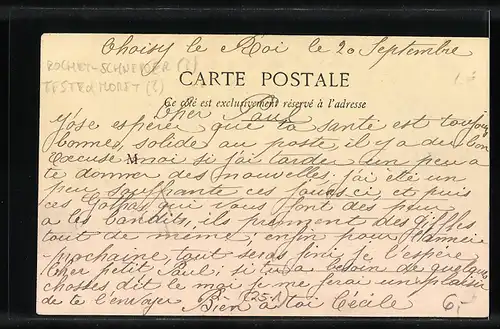 Choisy le Roi le 20 Septembre
ROCHET-SCHNEIDER (2)
TESTE & MORET (1)
CARTE POSTALE
Ce côté est exclusivement réservé à l'adresse
Cher Paul
J'ose espérer que ta santé est toujour
bonnes, solide au poste, il y a du bon
Excuse moi si j'ai tarder un peu a
te donner des nouvelles; j'ai été un
peu souffrante ces jours ci, et puis
ces qui vous font des peur
a les bandits, ils prennent des giffles
tout de même, enfin pour l'année
prochaine, tout seras fini je l'espère,
Cher petit Paul; si tu a besoin de quelque
chosses dit le moi je me ferai un plaisir
de te l'envoyer Bien a toi Cécile 6,-